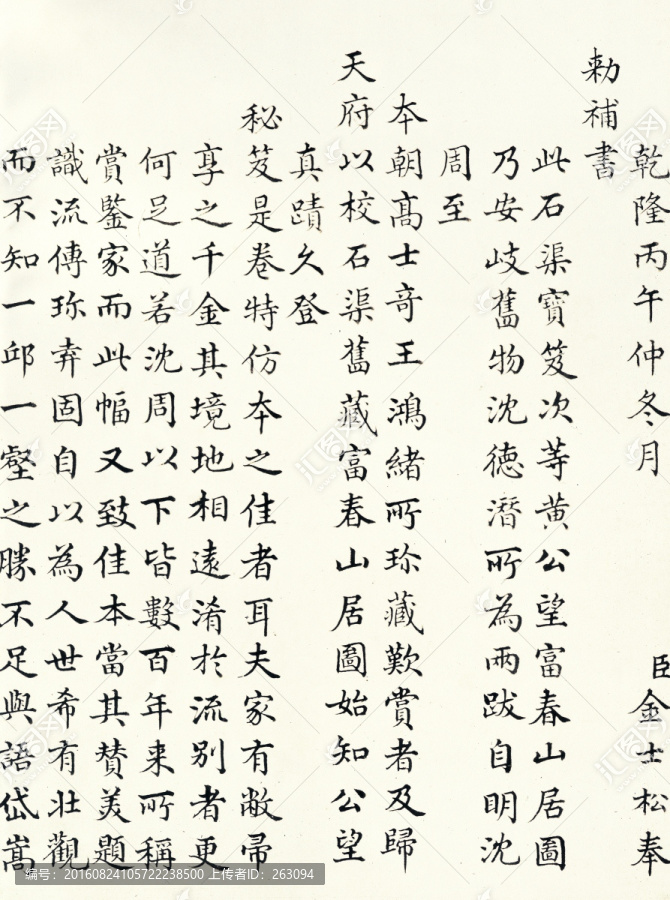 乾隆丙午仲冬月 臣金士松奉
勅補書
此石渠寶笈次等黄公望富春山居圖
乃安岐舊物沈徳潛所為兩跋自明沈
周至
本朝髙士奇王鴻緒所珎藏歎賞者及歸
天府以校石渠舊藏富春山居圖始知公望
真蹟久登
秘笈是卷特仿本之佳者耳夫家有敝帚
享之千金其境地相遠淆於流别者更
何足道若沈周以下皆數百年来所稱
賞鑒家而此幅又致佳本當其賛美題
識流傳珎弆固自以為人世希有壯觀
而不知一邱一壑之勝不足與語岱嵩
汇图网
编号：20160824105722238500 上传者ID：263094